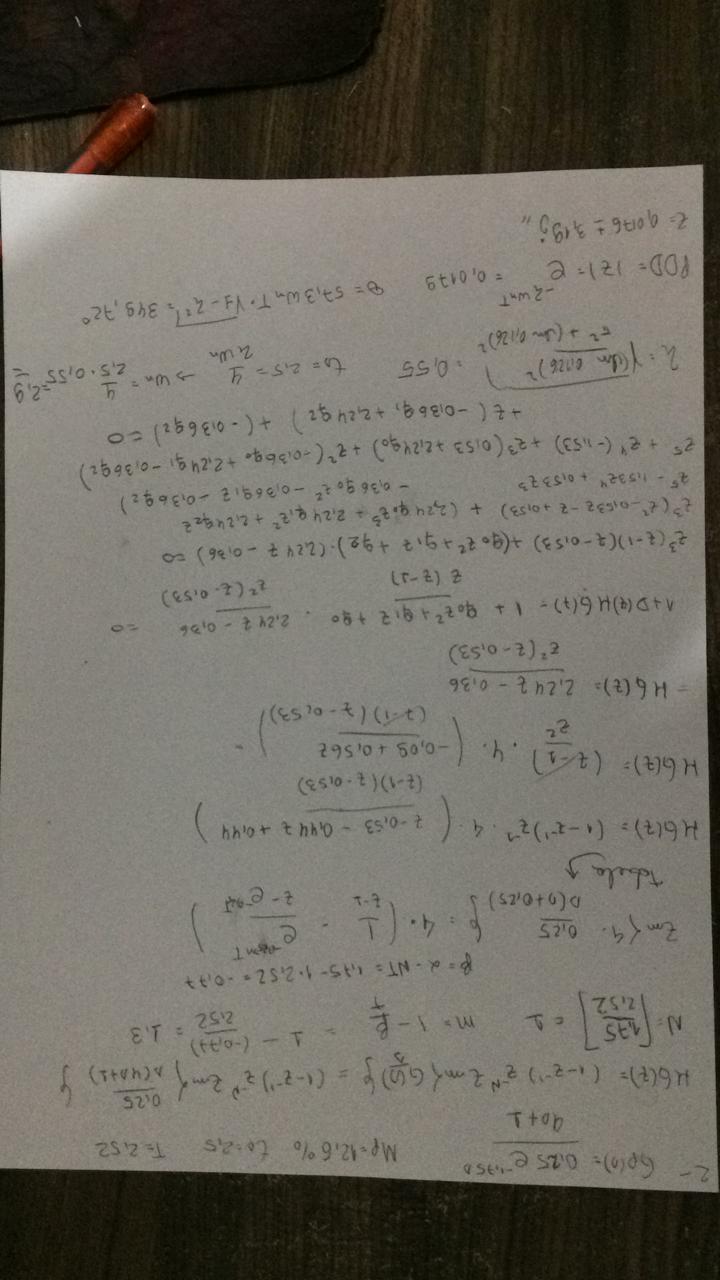 2- Gp(s) = 0,25 e^-1,75s / 4s+1 Mp=12,6% ts=2,5 T=2,52
HG(z) = (1-z^-1) z^-N Zm{G(s)/s} = (1-z^-1) z^-N Zm{0,25 / s(4s+1)}
N = ⌈1,75/2,52⌉ = 1 m = 1 - β/T = 1 - (-0,77)/2,52 = 1,3
β = α - NT = 1,75 - 1·2,52 = -0,77
Zm{4. 0,25 / s(s+0,25)} = 4·(1/z-1 - e^ mT / z-e^ T)
Tabela ↑
HG(z) = (1-z^-1)z^-1 . 4 (z-0,53 - 0,44z + 0,44 / (z-1)(z-0,53))
HG(z) = (z-1)/z² . 4. (-0,09+0,56z / (z-1)(z-0,53)) =
= HG(z) = 2,24z - 0,36 / z²(z-0,53)
1+D(z)HG(z) = 1 + q0z²+q1z+q0 / z(z-1) . 2,24z - 0,36 / z²(z-0,53) = 0
z³(z-1)(z-0,53) + (q0z²+q1z+q2)·(2,24z - 0,36) = 0
z³(z²-0,53z-z+0,53) + (2,24q0z³ + 2,24q1z² + 2,24q2z
z⁵ - 1,53z⁴ + 0,53z³ - 0,36q0z² - 0,36q1z - 0,36q2)
z⁵ + z⁴(-1,53) + z³(0,53+2,24q0) + z²(-0,36q0 + 2,24q1 - 0,36q2)
+ z(-0,36q1 + 2,24q2) + (-0,36q2) = 0
ξ = √((ln 0,126)² / π² + (ln 0,126)²) = 0,55 ts = 2,5 = 4/ξωn → ωn = 4/2,5·0,55 = 2,9
PDD = |z| = e^-ξωnT = 0,0179 θ = 57,3ωnT·√1-ξ² = 349,72°
z = 0,0176 ± 3,19j,,